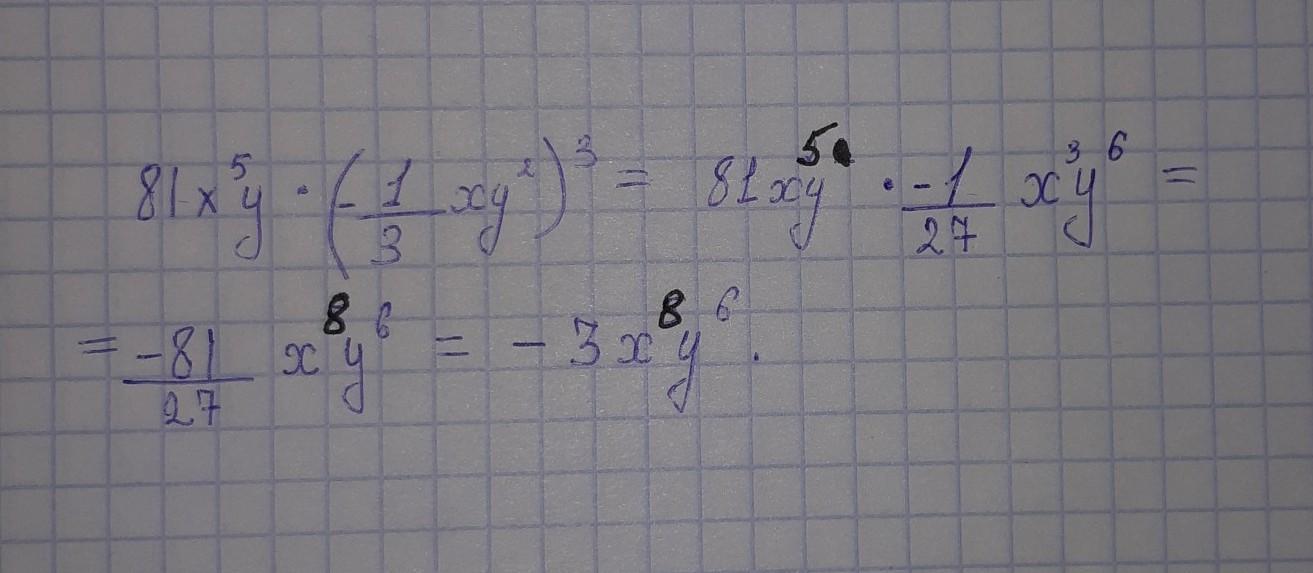 81x⁵y · (-1/3 xy²)³ = 81x⁵y · -1/27 x³y⁶ =
= -81/27 x⁸y⁶ = -3x⁸y⁶.